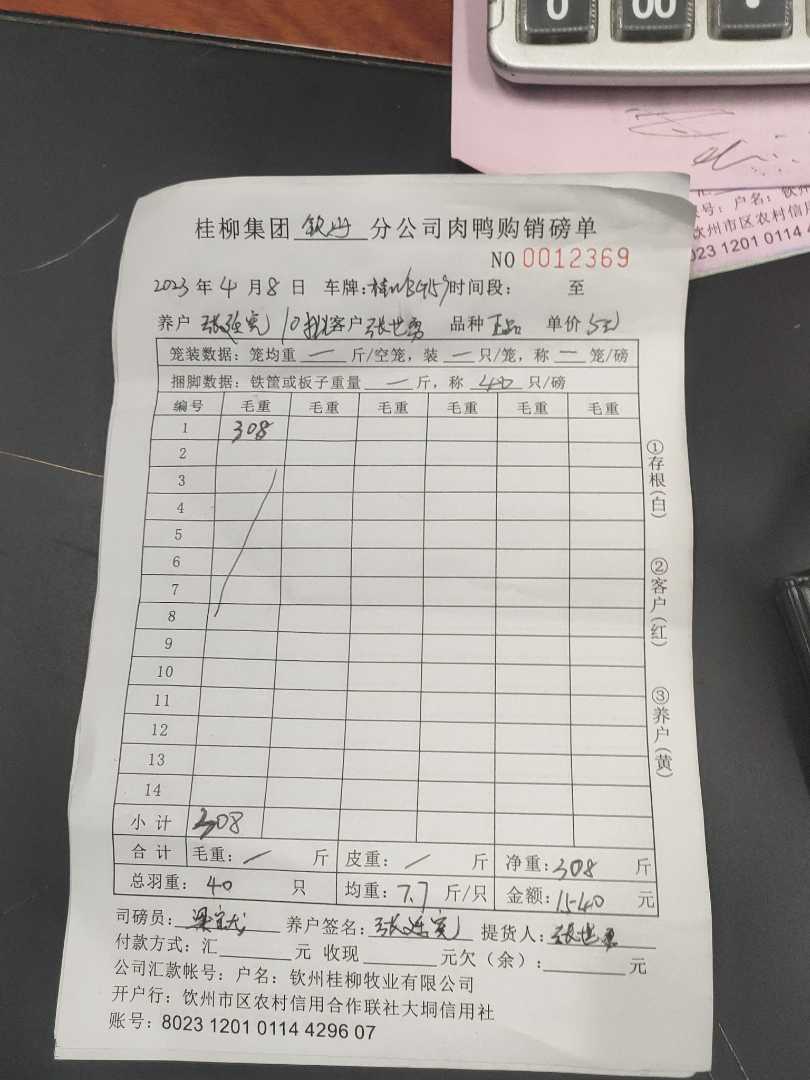 0 00
户名：钦
州市区农村信用
023 1201 0114 4
桂柳集团 钦州 分公司肉鸭购销磅单
NO 0012369
2023 年 4 月 8 日 车牌： 时间段： 至
养户 张 10批 客户 张世 品种 正品 单价 5元
笼装数据：笼均重 一 斤/空笼，装 一 只/笼，称 一 笼/磅
捆脚数据：铁筐或板子重量 一 斤，称 40 只/磅
编号 毛重 毛重 毛重 毛重 毛重 毛重
1 308
2
3
4
5
6
7
8
9
10
11
12
13
14
小计 308
合计 毛重： / 斤 皮重： / 斤 净重：308 斤
总羽重： 40 只 均重：7.7 斤/只 金额：1540 元
①存根（白）
②客户（红）
③养户（黄）
司磅员： 养户签名：张 提货人：张世
付款方式：汇 元 收现 元欠（余）： 元
公司汇款帐号：户名：钦州桂柳牧业有限公司
开户行：钦州市区农村信用合作联社大垌信用社
账号：8023 1201 0114 4296 07